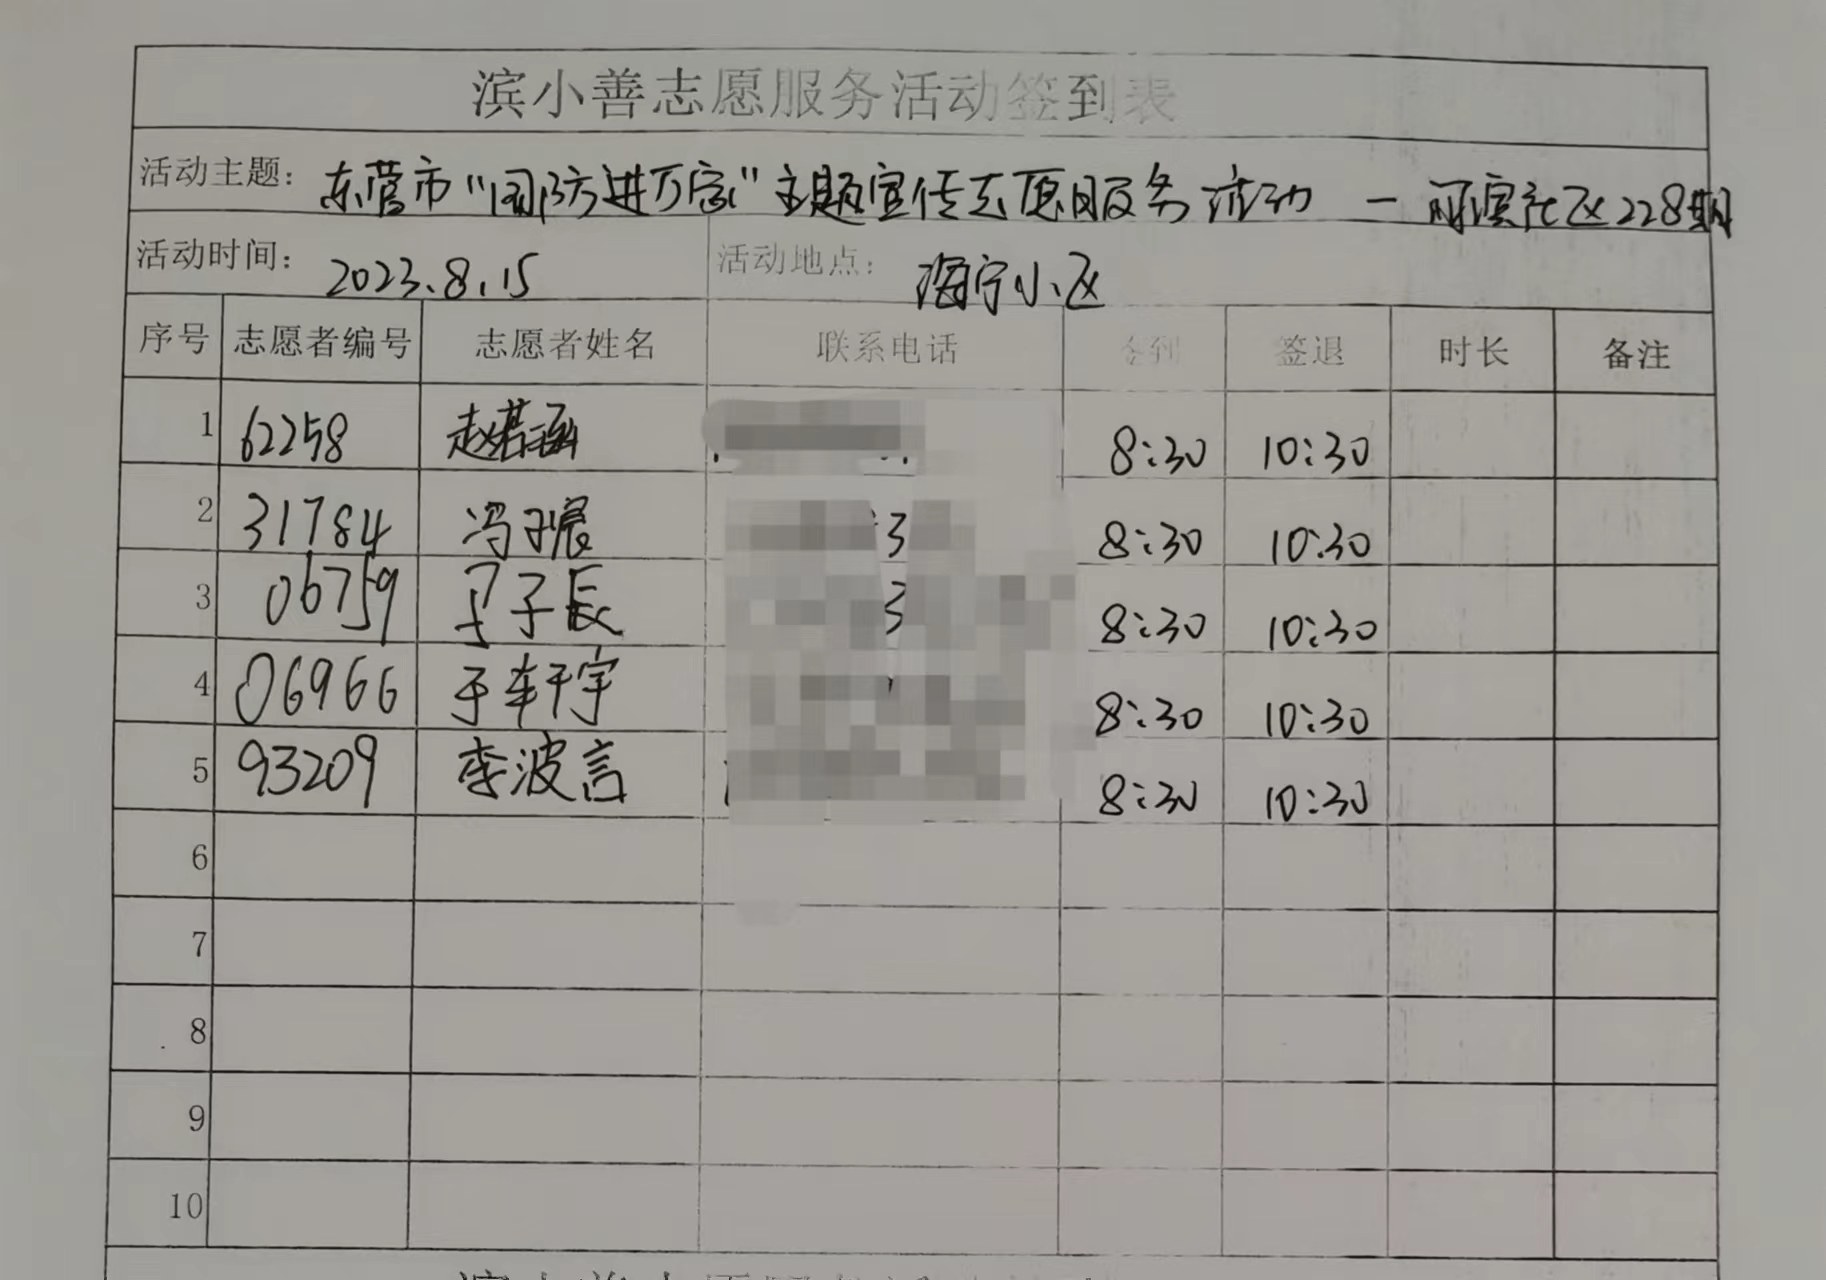 滨小善志愿服务活动签到表
活动主题： 东营市“国防进万家”主题宣传志愿服务活动 — 河滨社区228期
活动时间： 2023.8.15 活动地点： 海宁小区
序号 志愿者编号 志愿者姓名 联系电话 签到 签退 时长 备注
1 62258 赵若涵 8:30 10:30
2 31784 冯子宸 3 8:30 10:30
3 06759 子長 3 8:30 10:30
4 06966 于 宇 8:30 10:30
5 93209 李波言 8:30 10:30
6
7
8
9
10